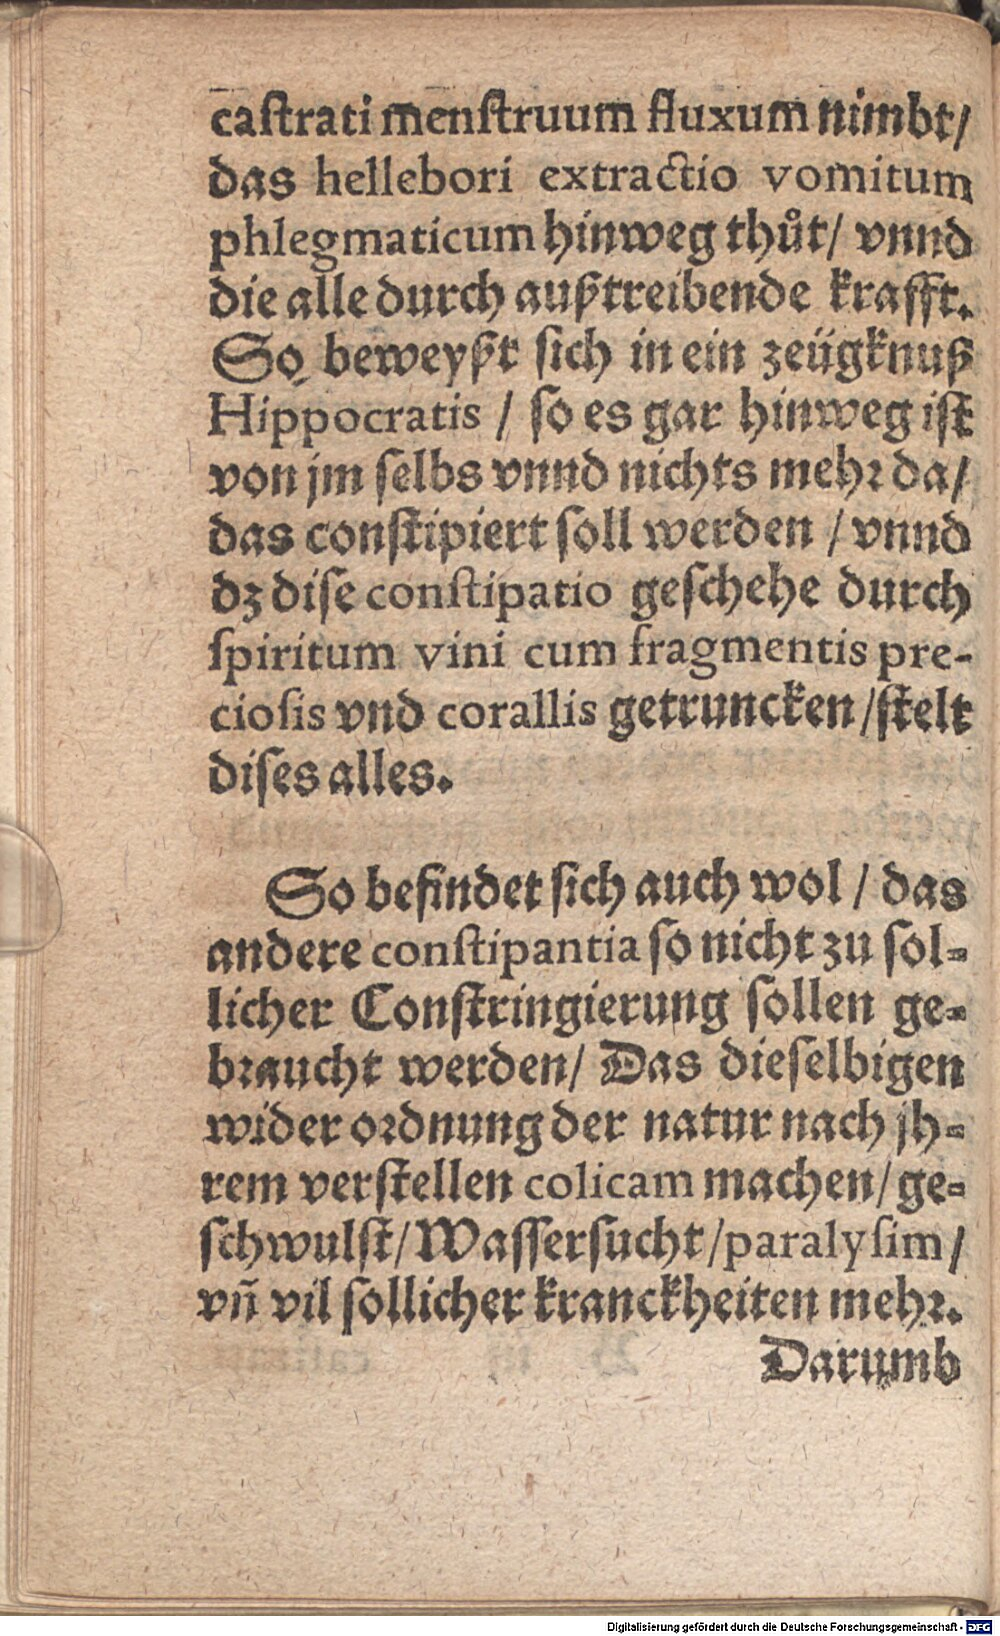 caſtrati menſtruum fluxum nimbt/
das hellebori extractio vomitum
phlegmaticum hinweg thůt/ vnnd
die alle durch außtreibende krafft.
So beweyßt ſich in ein zeügknuß
Hippocratis / ſo es gar hinweg iſt
von jm ſelbs vnnd nichts mehꝛ da/
das conſtipiert ſoll werden / vnnd
dz diſe conſtipatio geſchehe durch
ſpiritum vini cum fragmentis pre-
cioſis vnd corallis getruncken /ſtelt
diſes alles.
So befindet ſich auch wol / das
andere conſtipantia ſo nicht zu ſol⸗
licher Conſtringierung ſollen ge⸗
bꝛaucht werden/ Das dieſelbigen
wider oꝛdnung der natur nach jh⸗
rem verſtellen colicam machen/ ge⸗
ſchwulſt/ Waſſerſucht /paralyſim /
vñ vil ſollicher kranckheiten mehꝛ.
Darumb
Digitalisierung gefördert durch die Deutsche Forschungsgemeinschaft - DFG